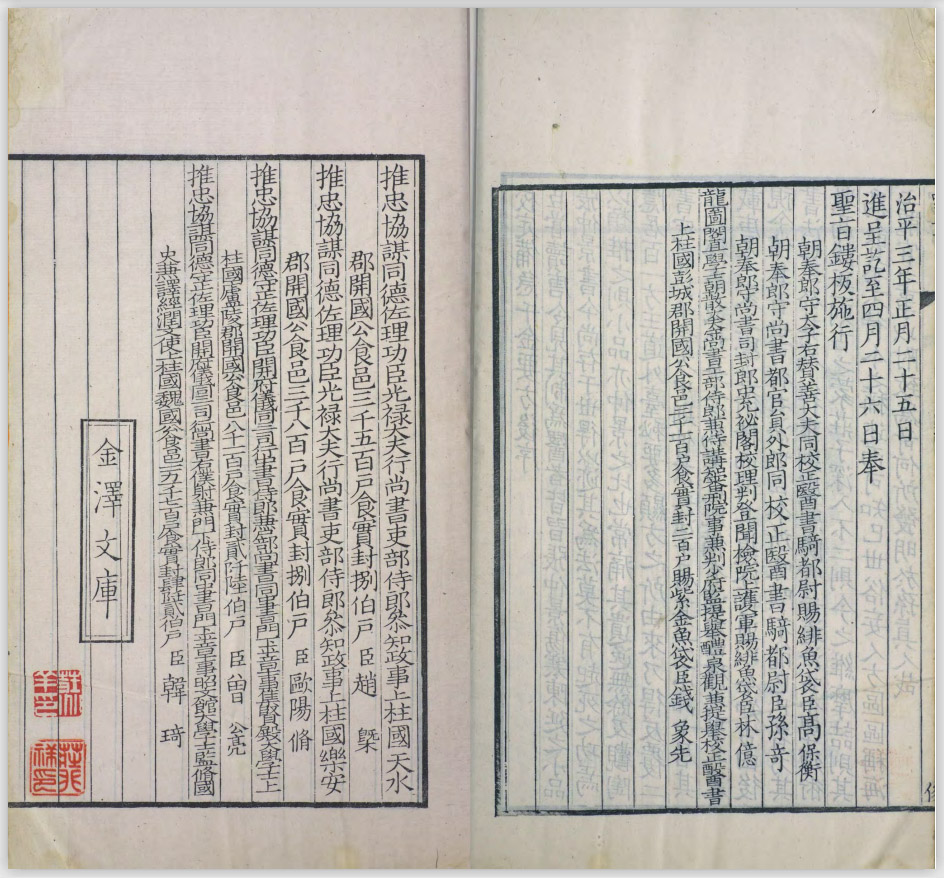 治平三年正月二十五日
進呈訖至四月二十六日奉
聖旨鏤板施行
朝奉郎守太子右贊善大夫同校正醫書騎都尉賜緋魚袋臣高保衡
朝奉郎守尚書都官員外郎同校正醫書騎都尉臣孫奇
朝奉郎守尚書司封郎中充祕閣校理判登聞檢院上護軍賜緋魚袋臣林億
龍圖閣直學士朝散大夫守尚書工部侍郎兼侍講知審刑院事兼判少府監提舉醴泉觀兼提舉校正醫書
上柱國彭城郡開國公食邑二千一百戶食實封二百戶賜紫金魚袋臣錢象先
推忠協謀同德佐理功臣光祿大夫行尚書吏部侍郎叅知政事上柱國天水
郡開國公食邑三千五百戶食實封捌伯戶臣趙槩
推忠協謀同德佐理功臣光祿大夫行尚書吏部侍郎叅知政事上柱國樂安
郡開國公食邑三千八百戶食實封捌伯戶臣歐陽脩
推忠協謀同德守正佐理功臣開府儀同三司行中書侍郎兼戶部尚書同中書門下平章事集賢殿大學士上
柱國廬陵郡開國公食邑八千一百戶食實封貳阡陸伯戶臣曾公亮
推忠協謀同德守正佐理功臣開府儀同三司行尚書右僕射兼門下侍郎同中書門下平章事昭文館大學士監脩國
史兼譯經潤文使上柱國魏國公食邑一万一千七百戶食實封肆阡貳伯戶臣韓琦
金澤文庫